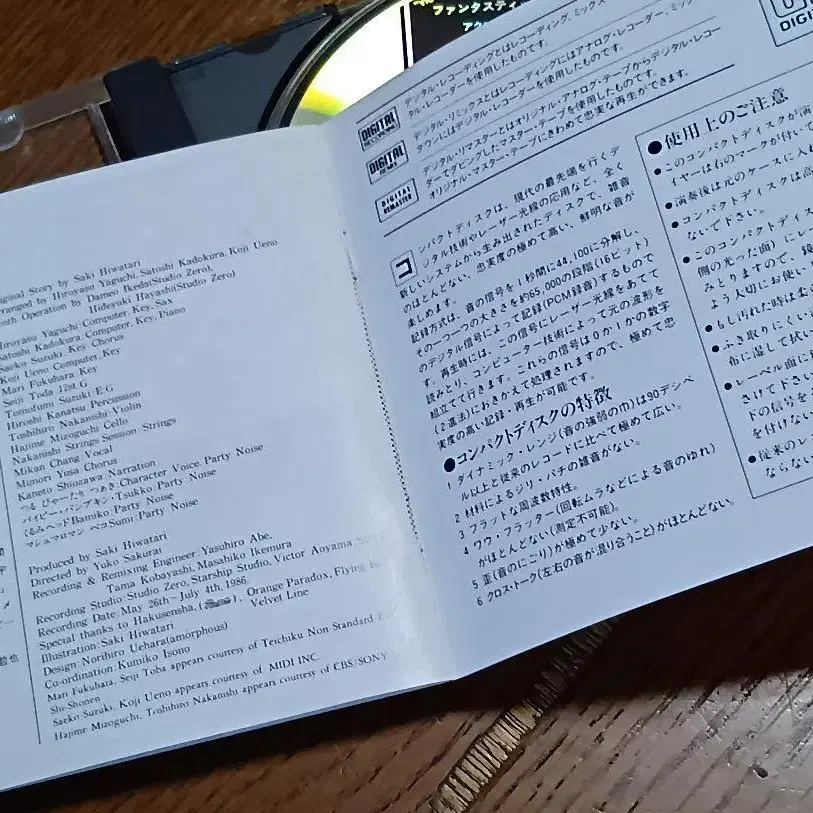 ファンタスティ
riginal Story by Saki Hiwatari
rranged by Hiroyasu Yaguchi, Satoshi Kadokura, Koji Ueno
Operation by Dameo Ikeda(Studio Zero),
Hideyuki Hayashi(Studio Zero)
Hiroyasu Yaguchi:Computer, Key, Sax
Satoshi Kadokura:Computer, Key, Piano
Saeko Suzuki:Key, Chorus
Koji Ueno:Computer, Key
Mari Fukuhara:Key
Seiji Toda:12st.G
Tomofumi Suzuki:E.G
Hiroshi Kanatsu:Percussion
Toshihiro Nakanishi:Violin
Hajime Mizoguchi:Cello
Nakanishi Strings:Session Strings
Mikan Chang:Vocal
Mimori Yusa:Chorus
Kaneto Shiozawa:Narration
Character Voice, Party Noise
パイピー・パンプキン・Tsukko:Party Noise
くるみヘッドBamiko:Party Noise
マシュマロマン ペコSumi:Party Noise
Produced by Saki Hiwatari
Directed by Yuko Sakurai
Recording & Remixing Engineer:Yasuhiro Abe,
Tama Kobayashi, Masahiko Ikemura
Recording Studio:Studio Zero, Starship Studio, Victor Aoyama
Recording Date:May 26th~July 4th, 1986.
Special thanks to Hakusensha, Orange Paradox, Flying
Velvet Line
Illustration:Saki Hiwatari
Design:Norihiro Uehara(amorphous)
Co-ordination:Kumiko Isono
Mari Fukuhara, Seiji Toba appears courtesy of Teichiku Non Standard
Shi-Shonen
Saeko Suzuki, Koji Ueno appears courtesy of MIDI INC
Hajime Mizoguchi, Toshihiro Nakanishi appears courtesy of CBS/SONY
DIGITAL RECORDING
デジタル・レコーディングとはレコーディング、ミックス
タル・レコーダーを使用したものです。
DIGITAL REMIX
デジタル・リミックスとはレコーディングにはアナログ・レコーダー、ミック
ダウンにはデジタル・レコーダーを使用したものです。
DIGITAL REMASTER
デジタル・リマスターとはオリジナル・アナログ・テープからデジタル・レコー
ダーでダビングしたマスター・テープを使用したものです。
オリジナル・マスター・テープにきわめて忠実な再生ができます。
コンパクトディスクは、現代の最先端を行くデ
ジタル技術やレーザー光線の応用など、全く
新しいシステムから生み出されたディスクで、雑音
のほとんどない、忠実度の極めて高い、鮮明な音が
楽しめます。
記録方式は、音の信号を1秒間に44,100に分解し、
その一つ一つの大きさを約65,000の段階(16ビット)
のデジタル信号によって記録(PCM録音)するもので
す。再生時には、この信号にレーザー光線をあてて
読みとり、コンピューター技術によって元の波形を
組立てて行きます。これらの信号は0か1かの数字
(2進法)におきかえて処理されますので、極めて忠
実度の高い記録・再生が可能です。
●コンパクトディスクの特徴
1 ダイナミック・レンジ(音の強弱の巾)は90デシベ
ル以上と従来のレコードに比べて極めて広い。
2 材料によるジリ・パチの雑音がない。
3 フラットな周波数特性。
4 ワウ・フラッター(回転ムラなどによる音のゆれ)
がほとんどない(測定不可能)。
5 歪(音のにごり)が極めて少ない。
6 クロス・トーク(左右の音が混り合うこと)がほとんどない。
DIGI
●使用上のご注意
●このコンパクトディスクが演
イヤーは右のマークが付いて
●演奏後は元のケースに入れ
●コンパクトディスクは高
ないで下さい。
●このコンパクトディス
側の光った面)にレー
みとりますので、鏡
よう大切にお使い
●もし汚れた時は柔
●ふき取りにくい
布に湿して拭い
●レーベル面に
さけて下さい
ドの信号を
を付けない
●従来のレ
ならない